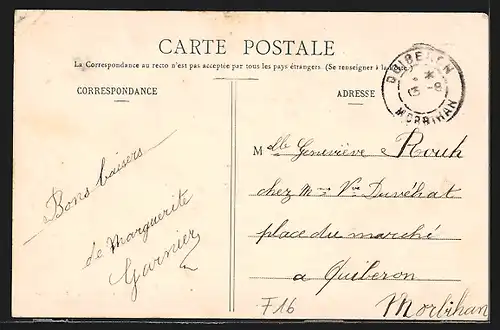 CARTE POSTALE
La Correspondance au recto n'est pas acceptée par tous les pays étrangers. (Se renseigner à la Poste)
CORRESPONDANCE
ADRESSE
QUIBERON
13 * -8
MORBIHAN
Bons baisers
de Marguerite
Garnier
Mlle Geneviève Rouh
chez Mme Vve Duvéhat
place du marché
a Quiberon
Morbihan
F16